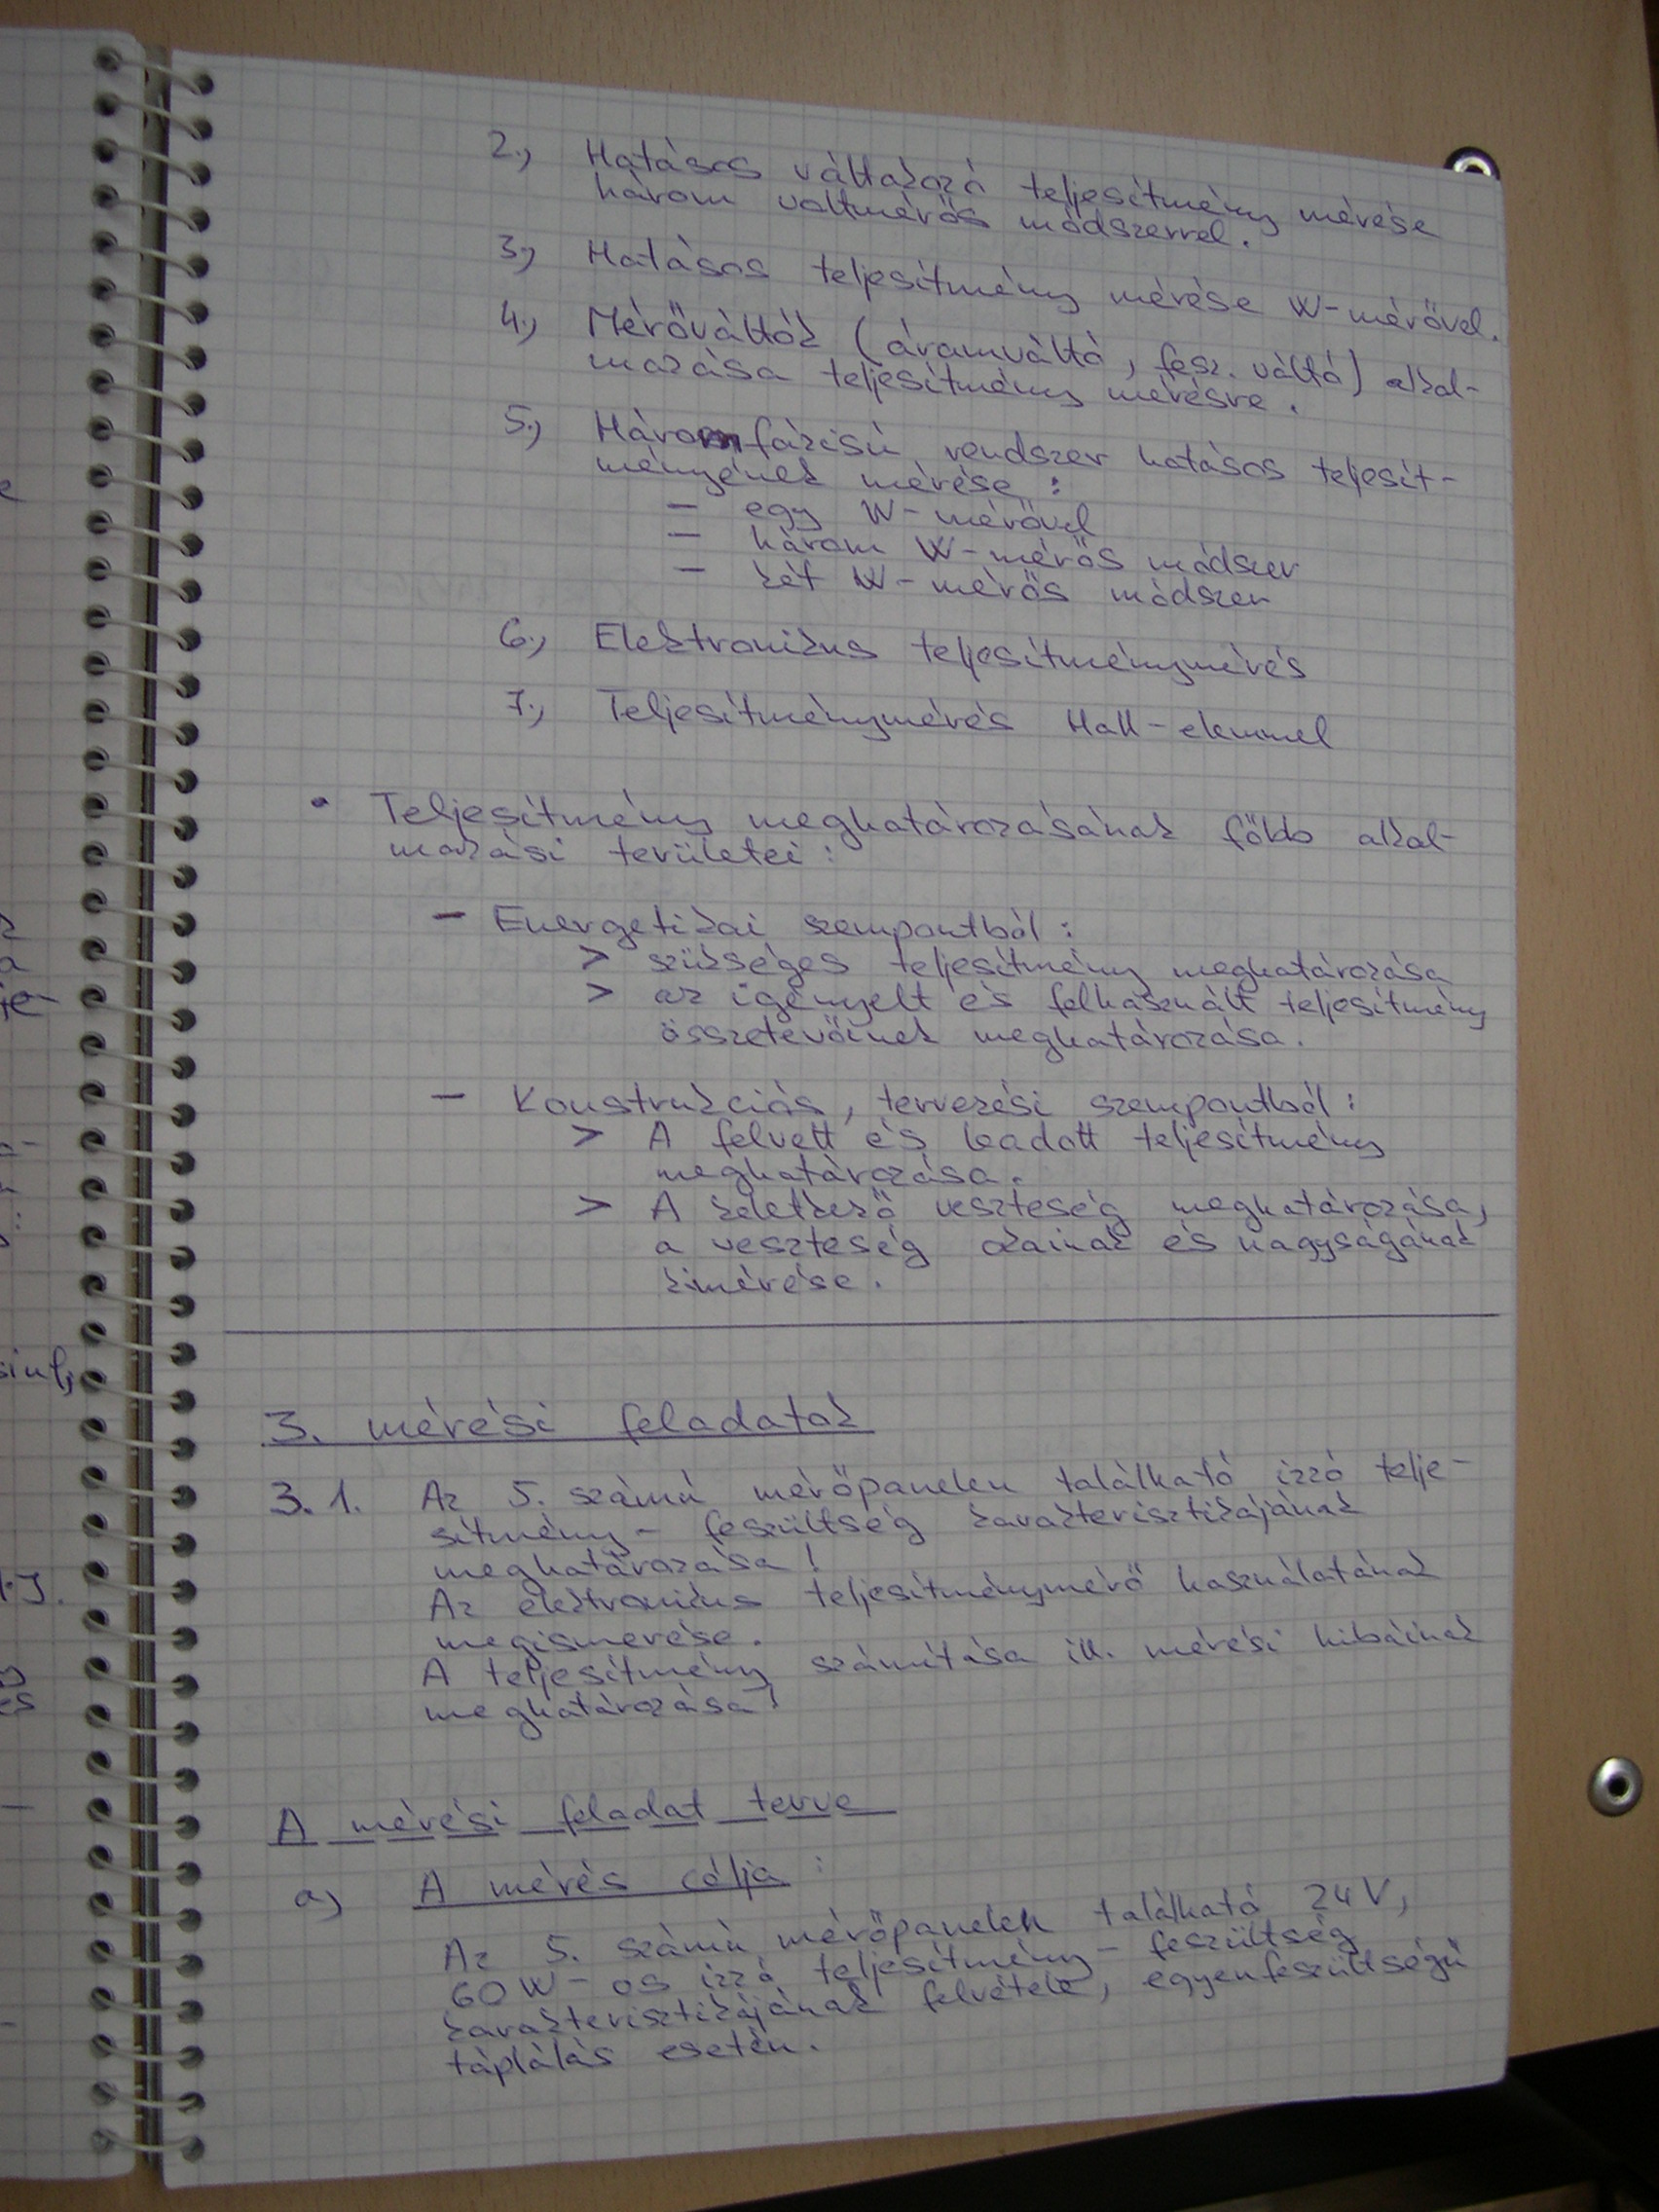 2., Hatásos váltakozó teljesítmény mérése
három voltmérős módszerrel.
3., Hatásos teljesítmény mérése W-mérővel.
4., Mérőváltók (áramváltó, fesz. váltó) alkal-
mazása teljesítmény mérésre.
5., Háromfázisú rendszer hatásos teljesít-
ményének mérése:
- egy W-mérővel
- három W-mérős módszer
- két W-mérős módszer
6., Elektronikus teljesítménymérés
7., Teljesítménymérés Hall-elemmel
• Teljesítmény meghatározásának főbb alkal-
mazási területei:
- Energetikai szempontból:
> szükséges teljesítmény meghatározása
> az igényelt és felhasznált teljesítmény
összetevőinek meghatározása.
- Konstrukciós, tervezési szempontból:
> A felvett és leadott teljesítmény
meghatározása.
> A keletkező veszteség meghatározása,
a veszteség okainak és nagyságának
kimérése.
3. mérési feladatok
3.1. Az 5. számú mérőpanelen található izzó telje-
sítmény - feszültség karakterisztikájának
meghatározása!
Az elektronikus teljesítménymérő használatának
megismerése.
A teljesítmény számítása ill. mérési hibáinak
meghatározása!
A mérési feladat terve
a) A mérés célja:
Az 5. számú mérőpanelen található 24V,
60W-os izzó teljesítmény - feszültség
karakterisztikájának felvétele, egyenfeszültségű
táplálás esetén.